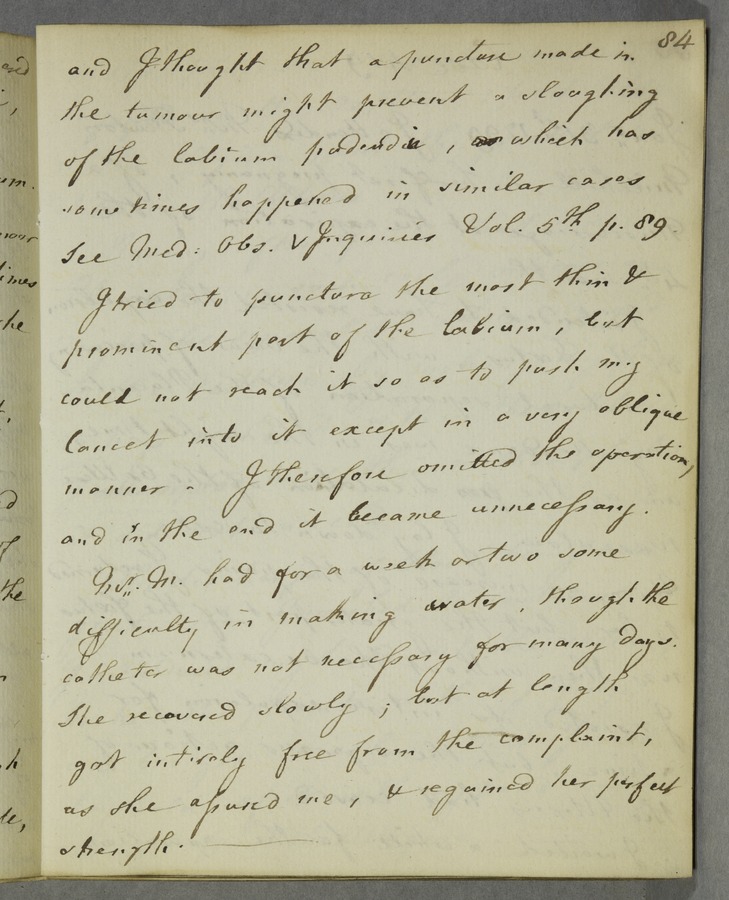 84
and I thought that a puncture made in
the tumour might prevent a sloughing
of the labium pudendi, which has
sometimes happened in similar cases
See Med: Obs. & Inquiries Vol. 5th p. 89.
I tried to puncture the most thin &
prominent part of the labium, but
could not reach it so as to push my
lancet into it except in a very oblique
manner. I therefore omitted the operation,
and in the end it became unnecessary.
Mrs. M. had for a week or two some
difficulty in making water, though the
catheter was not necessary for many days.
She recovered slowly; but at length
got intirely free from the complaint,
as she assured me, & regained her perfect
strength.